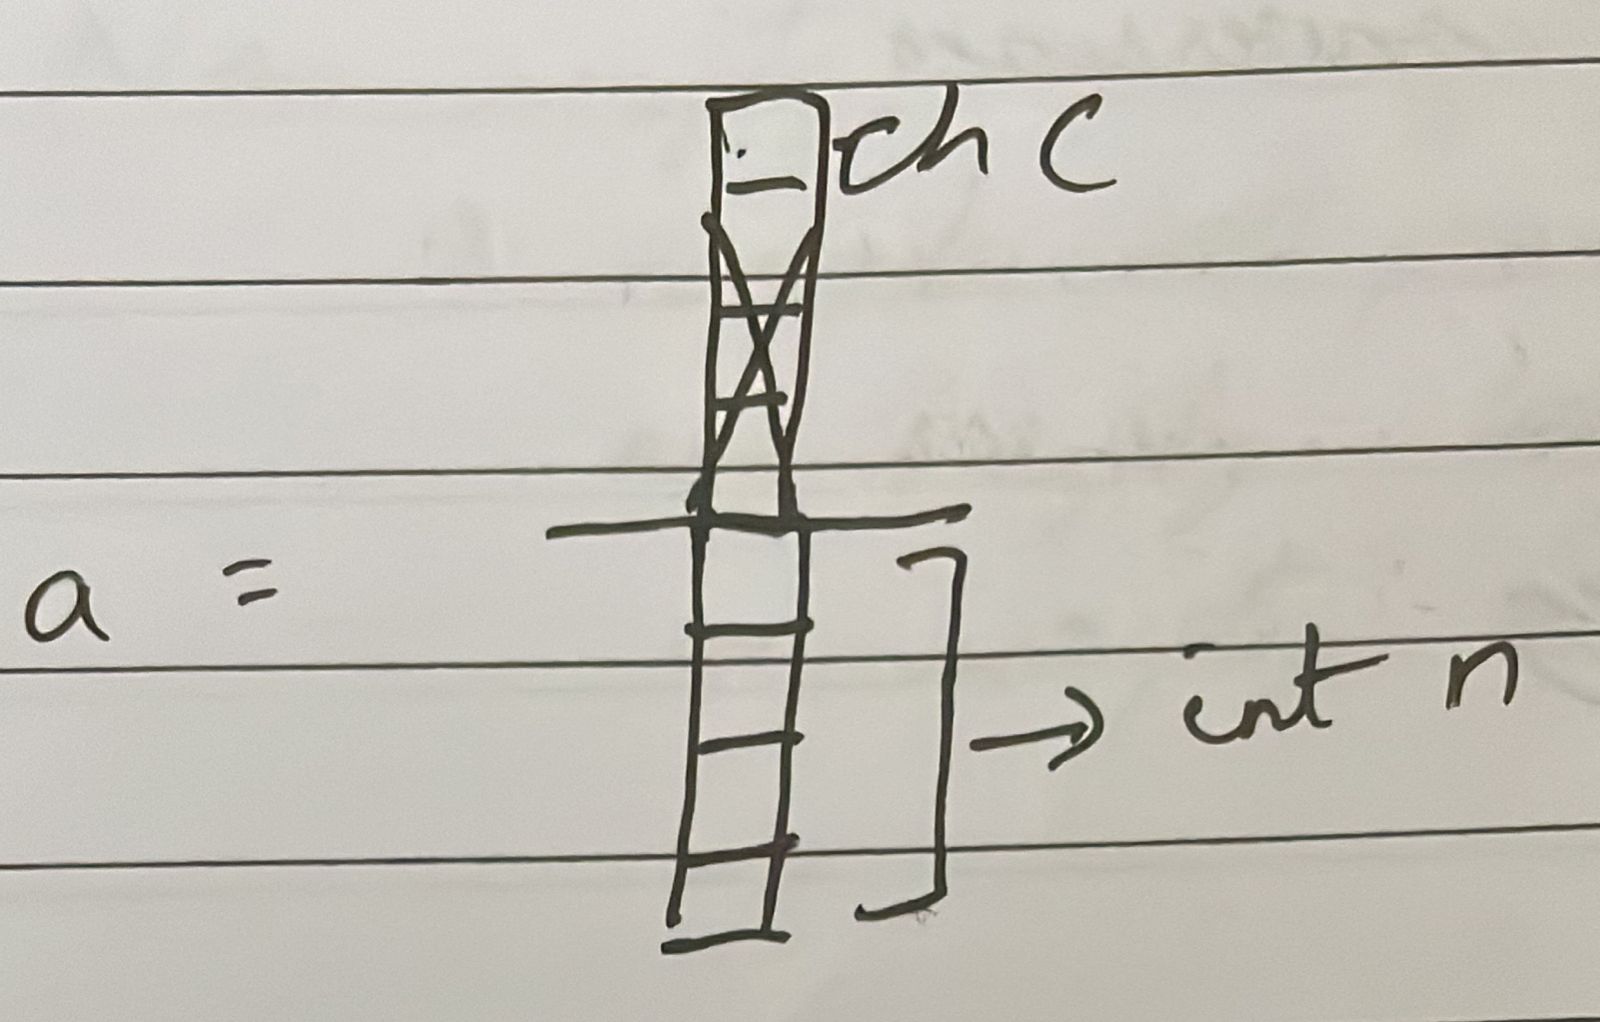 ch c
a =
→ int n